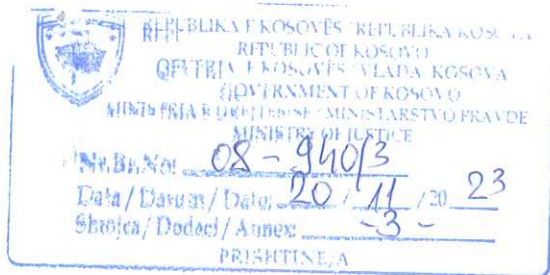 REPUBLIKA E KOSOVËS / REPUBLIKA KOSOVA
REPUBLIC OF KOSOVO
QEVERIA E KOSOVËS / VLADA KOSOVA
GOVERNMENT OF KOSOVO
MINISTRIA E DREJTËSISË / MINISTARSTVO PRAVDE
MINISTRY OF JUSTICE
Nr.Br.No: 08-940/3
Data/Datum/Date: 20 / 11 / 20 23
Shtojca/Dodaci/Annex: -3-
PRISHTINË/A